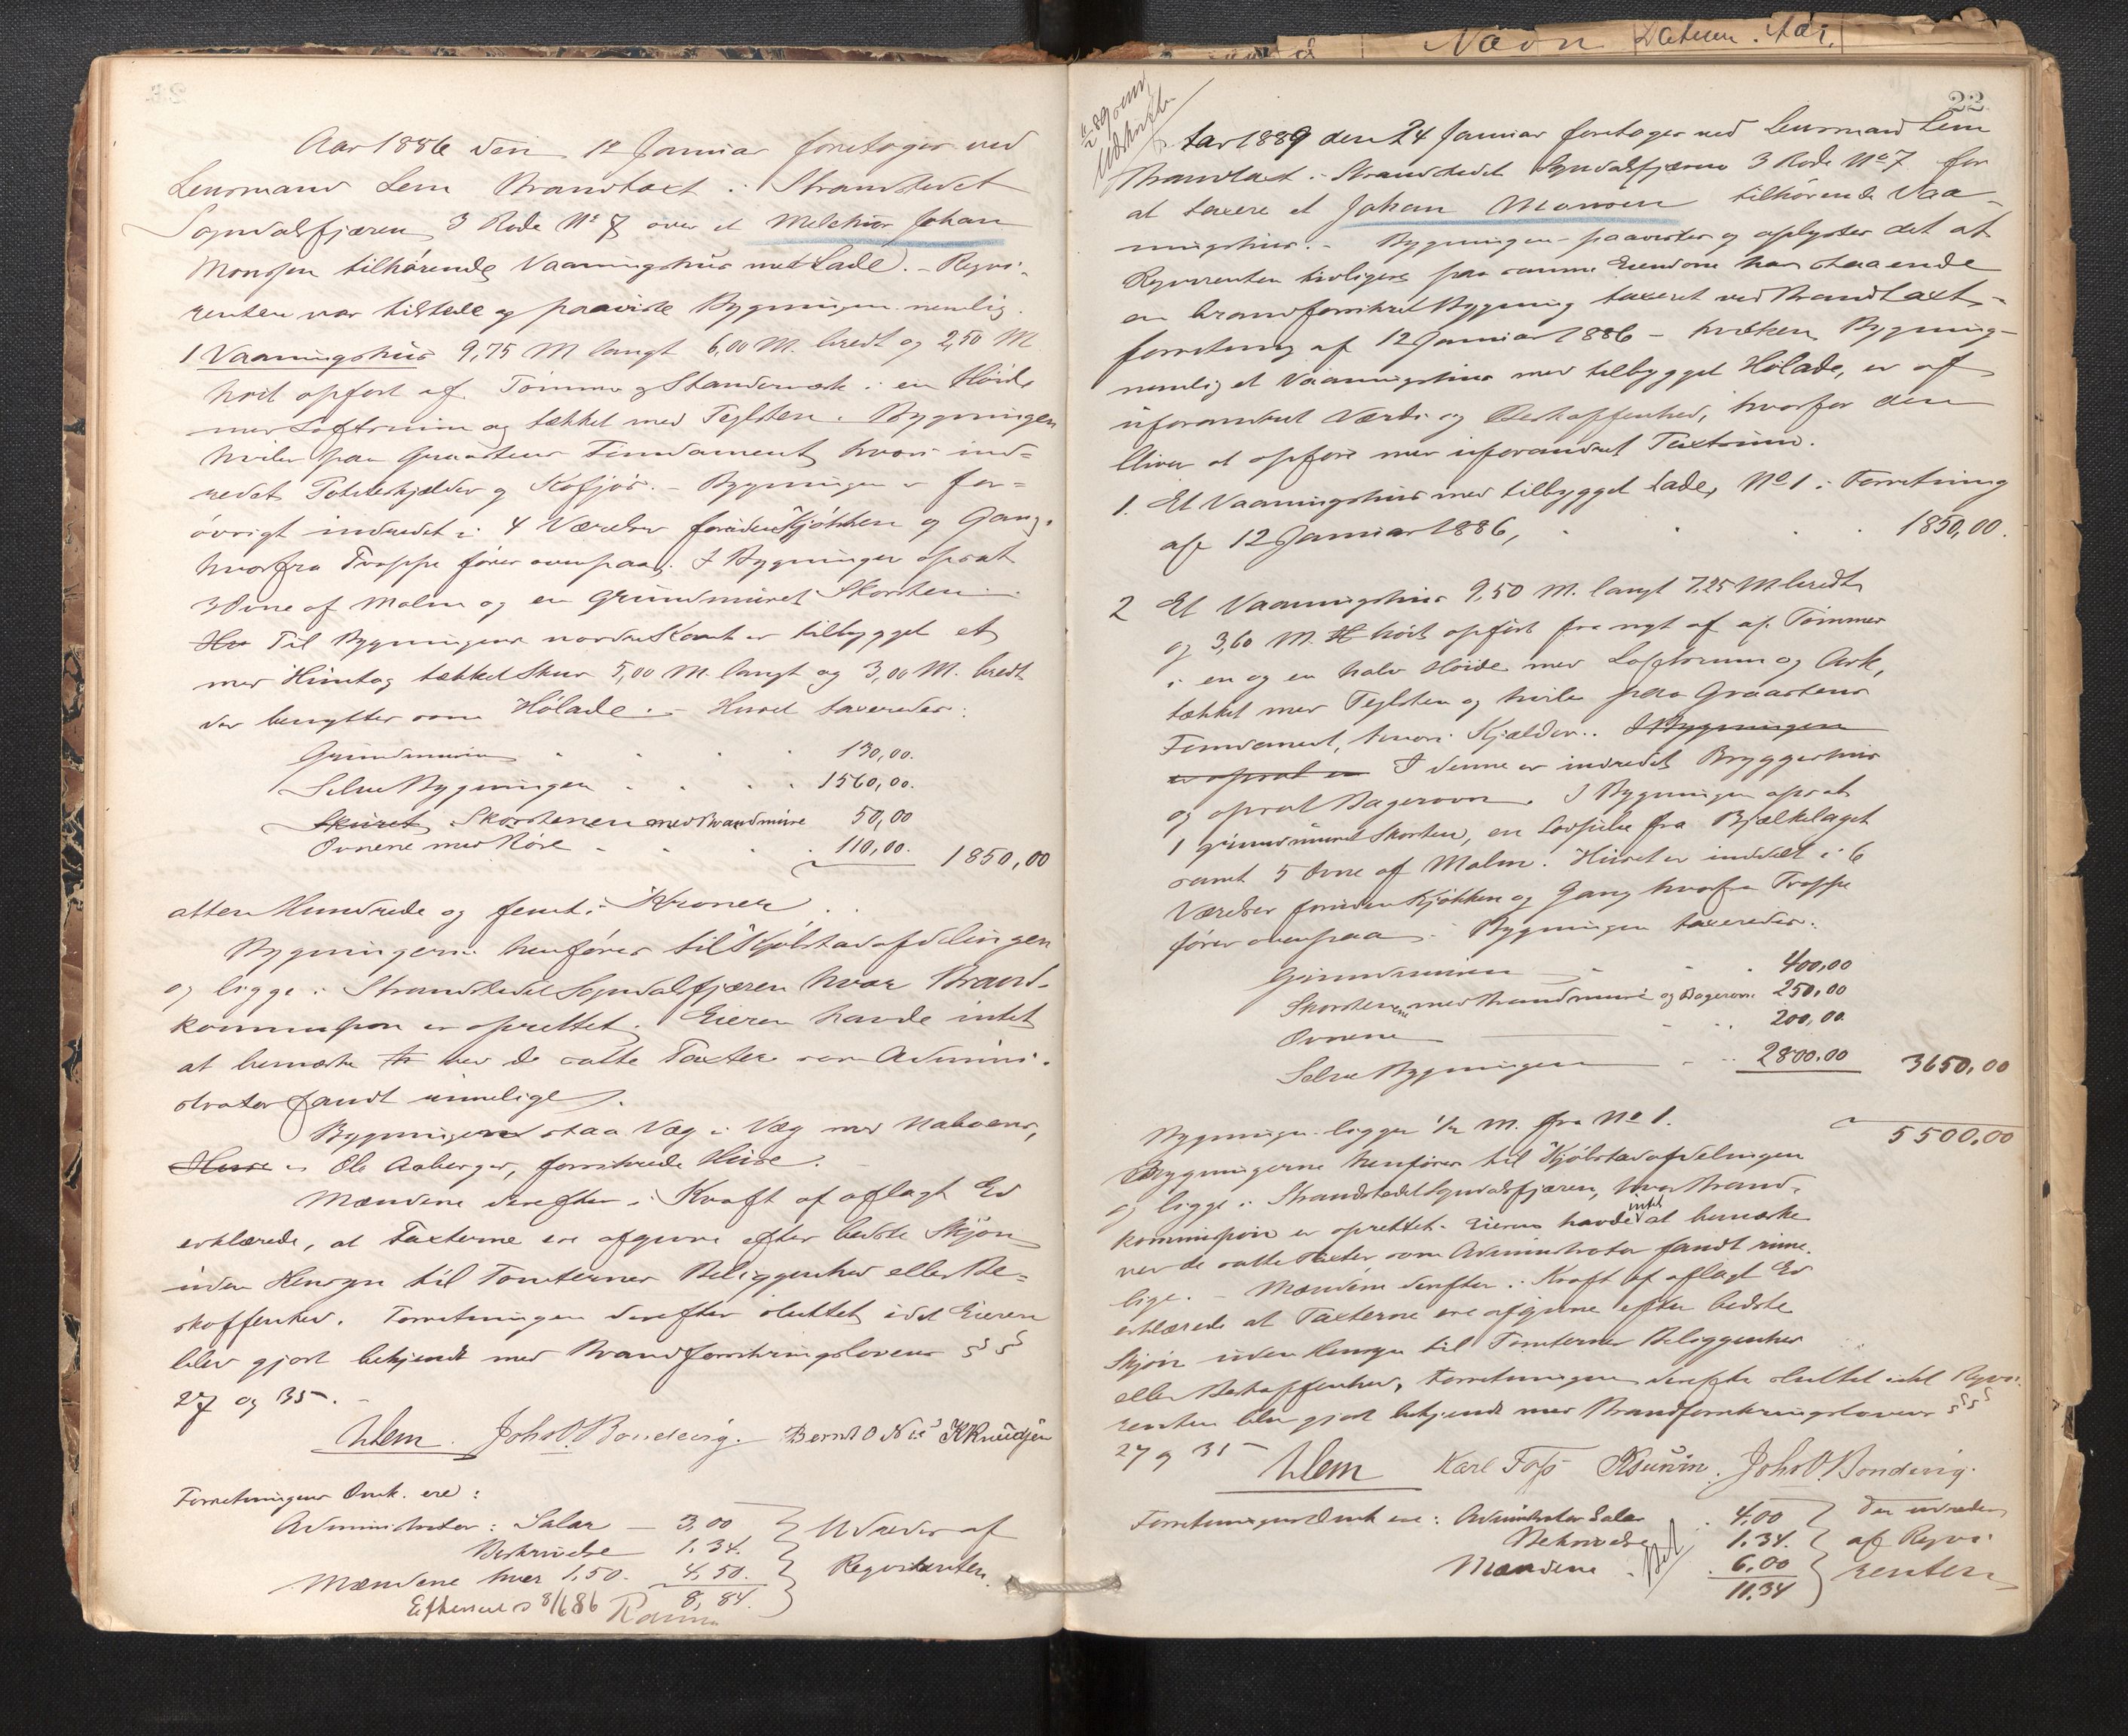 Navn Datum. Aar.
Aar 1886 den 12 Januar foretoges ved
Lensmand Lem Brandtaxt i Strandstedet
Sogndalsfjæren 3 Rode No 7 over et Melchior Johan
Monsen tilhørende Vaaningshus med Lade. – Reqvi-
renten var tilstede og paaviste Bygningen nemlig.
1 Vaaningshus 9,75 M langt 6,00 M. bredt og 2,50 M
høit opført af Tømmer og Standerværk i en Høide
med Loftrum og tækket med Teglsten. Bygningen
hviler paa Graastens Fundament hvori ind-
redet Poteteskjælder og Kofjøs. – Bygningen er for-
øvrigt indredet i 4 Værelser foruden Kjøkken og Gang,
hvorfra Trappe fører ovenpaa. I Bygningen opsat
3 Ovne af Malm og en grundmuret Skorsten.
Hu Til Bygningens nordre Kant er tilbygget et
med Huntag tækket Skur 5,00 M. langt og 3,00 M. bredt
der benyttes som Hølade. – Huset taxeredes:
Grundmuren 130,00.
Selve Bygningen 1560,00.
Skuret Skorstenen med Brandmure 50,00
Ovnene med Rør 110,00. 1850,00
atten Hundrede og femti Kroner.
Bygningerne henføres til Kjøbstadafdelingen
og ligge i Strandstedet Sogndalsfjæren hvor Brand-
kommission er oprettet. Eieren havde intet
at bemærke ved de satte Taxter som Admini-
strator fandt rimelige.
Bygningen staa Væg i Væg med Naboens,
Huse Ole Aabergs, forsikrede Huse.
Mændene derefter i Kraft af aflagt Ed
erklærede, at Taxterne ere afgivne efter bedste Skjøn
uden Hensyn til Tomternes Beliggenhed eller Be-
skaffenhed. Forretningen derefter sluttet idet Eieren
blev gjort bekjendt med Brandforsikringslovens §§
27 og 35. –
Lem. Joh. O. Bondevig. Bernt O Nes K Knudsen
Forretningens Omk. ere:
Administrator: Salær – 3,00
Beskrivelse 1,34.
Mændene hver 1,50. 4,50.
8,84.
Udredes af
Reqvirenten.
8/6 86
22
Udskrift
Aar 1889 den 24 Januar foretoges ved Lensmand Lem
Brandtaxt i Strandstedet Sogndalsfjæren 3 Rode No 7 for
at taxere et Johan Monsen tilhørende Vaa-
ningshus. – Bygningen paavistes og oplystes det at
Reqvirenten tidligere paa samme Eiendom har staaende
en brandforsikret Bygning taxeret ved Brandtaxt-
forretning af 12 Januar 1886 – hvilken Bygning
nemlig et Vaaningshus med tilbygget Hølade, er af
uforandret Værdi og Beskaffenhed, hvorfor den
bliver at opføre med uforandret Taxtsum.
1. Et Vaaningshus med tilbygget Lade, No 1 i Forretning
af 12 Januar 1886, 1850,00.
2 Et Vaaningshus 9,50 M. langt 7,25 M bredt
og 3,60 M. H høit opført fra nyt af af Tømmer
i en og en halv Høide med Loftrum og Ark,
tækket med Teglsten og hviler paa Graastens
Fundament, hvori Kjælder. I Bygningen
er opsat en I denne er indredet Bryggerhus
og opsat Bagerovn. I Bygningen opsat
1 grundmuret Skorsten, en Lovpibe fra Bjælkelaget
samt 5 Ovne af Malm. Huset er inddelt i 6
Værelser foruden Kjøkken og Gang hvorfra Trappe
fører ovenpaa. Bygningen taxeredes:
Grundmuren 400,00
Skorstenene med Brandmure og Bagerovn 250,00
Ovnene 200,00
Selve Bygningen 2800,00 3650,00
Bygningen ligger 1/2 M. fra No 1. 5500,00
Bygningerne henføres til Kjøbstadafdelingen
og ligge i Strandstedet Sogndalsfjæren, hvor Brand-
kommission er oprettet. Eieren havde intet at bemærke
ved de satte Taxter som Administrator fandt rime-
lige. – Mændene derefter i Kraft af aflagt Ed
erklærede at Taxterne ere afgivne efter bedste
Skjøn uden Hensyn til Tomternes Beliggenhed
eller Beskaffenhed, Forretningen derefter sluttet idet Reqvi-
renten blev gjort bekjendt med Brandforsikringslovens §§
27 og 35
Lem Karl Foss Joh. O. Bondevig.
Forretningens Omk ere: Administrator Salær 4,00
Beskrivelse 1,34.
Mændene 6,00
11,34
Bet
der udredes
af Reqvi-
renten